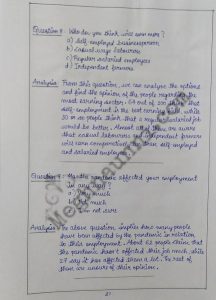 Question 8 Who do you think will earn more?
a) Self employed businessperson
b) Casual wage labourers
c) Regular salaried employees
d) Independent farmers
Analysis From this question, we can analyse the options
and find the opinion of the people regarding the
most earning sector. 64 out of 100 feel that
self-employment is the best earning sector, while
30 in 100 people think that a regular salaried job
would be better. Almost all of them are aware
that casual labourers and independent farmers
will earn comparatively less than self employed
and salaried employees.
Question 9 Has the pandemic affected your employment
in any way?
a) Very much
b) Not much
c) I'm not sure
Analysis The above question implies how many people
have been affected by the pandemic in relation
to their employment. About 62 people claim that
the pandemic hasn't affected their job much while
27 say it has affected them a lot. The rest of
them are unsure of their opinion.
27